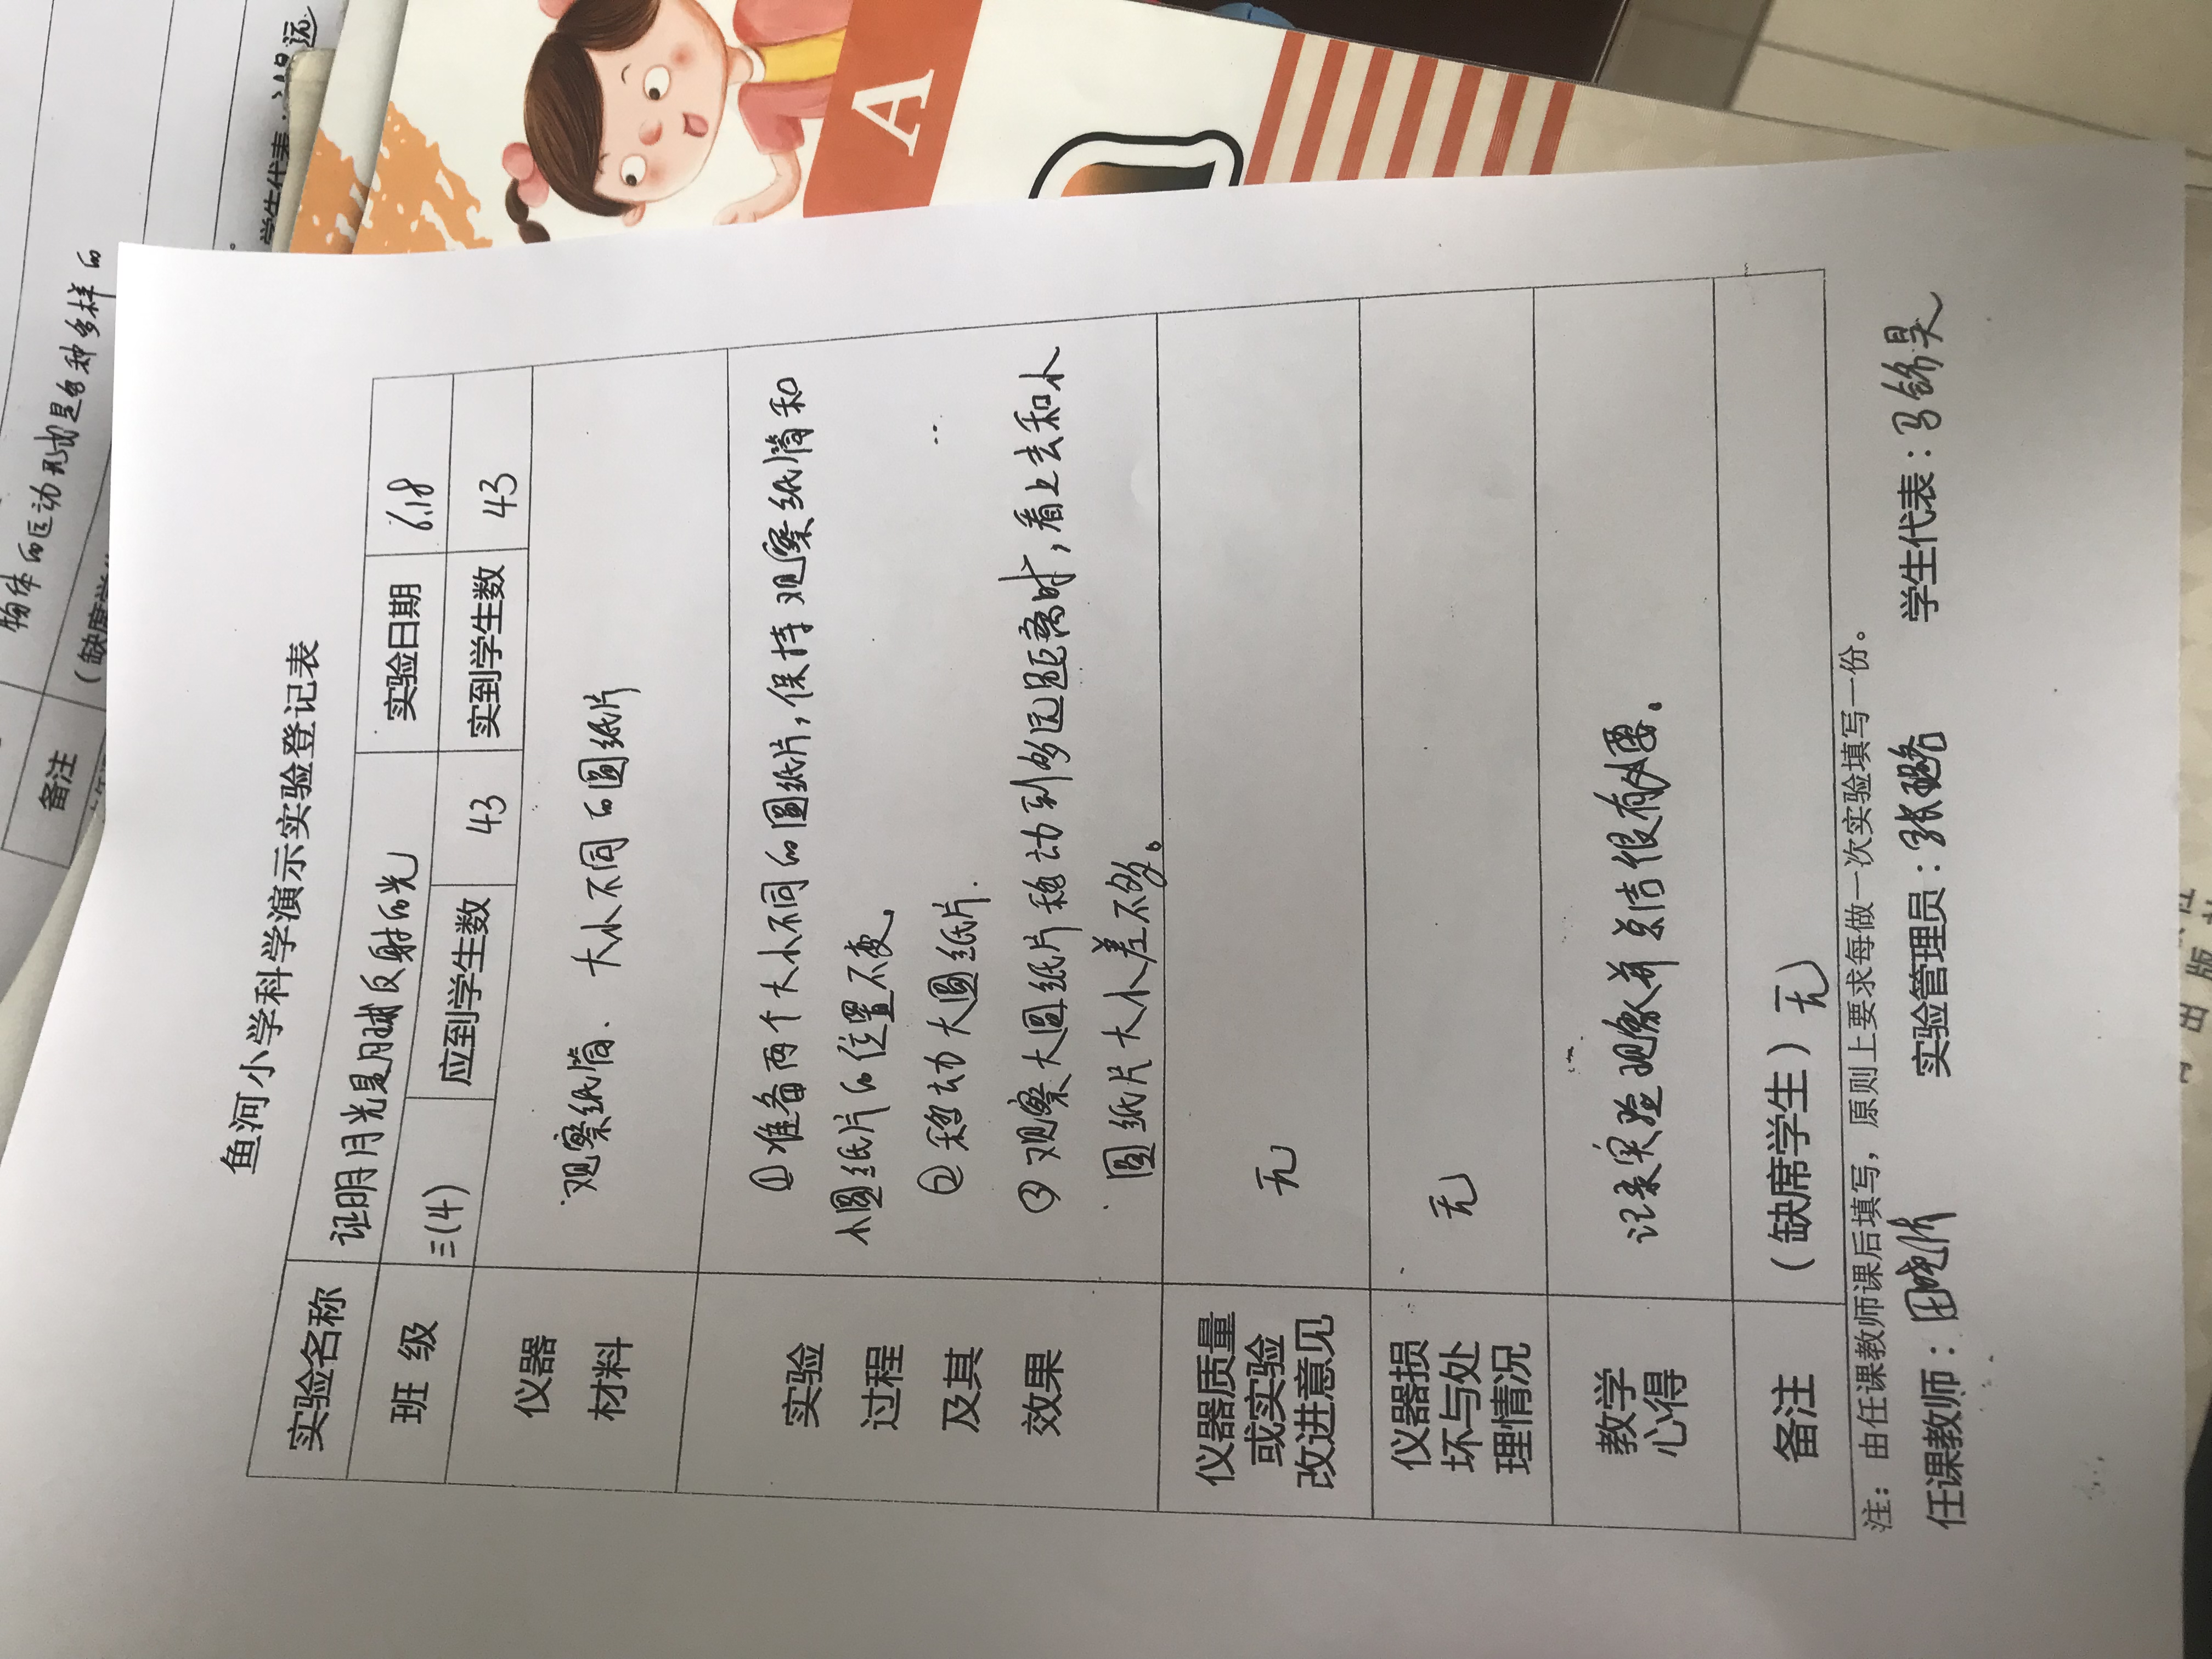 鱼河小学科学演示实验登记表
实验名称 证明月光是月球反射的光 实验日期 6.18
班 级 三(4) 应到学生数 43 实到学生数 43
仪器
材料
观察纸筒、大小不同的圆纸片
实验
过程
及其
效果
①准备两个大小不同的圆纸片,保持观察纸筒和
小圆纸片的位置不变
②移动大圆纸片.
③观察大圆纸片移动到多远距离时,看上去和小
圆纸片大小差不多。
仪器质量
或实验
改进意见
无
仪器损
坏与处
理情况
无
教学
心得
记录实验现象并总结很有必要。
备注 (缺席学生)无
注:由任课教师课后填写,原则上要求每做一次实验填写一份。
任课教师: 实验管理员:张璐 学生代表:马锦昊
物体的运动形式是多种多样的
备注
(缺席学
学生代表:
A